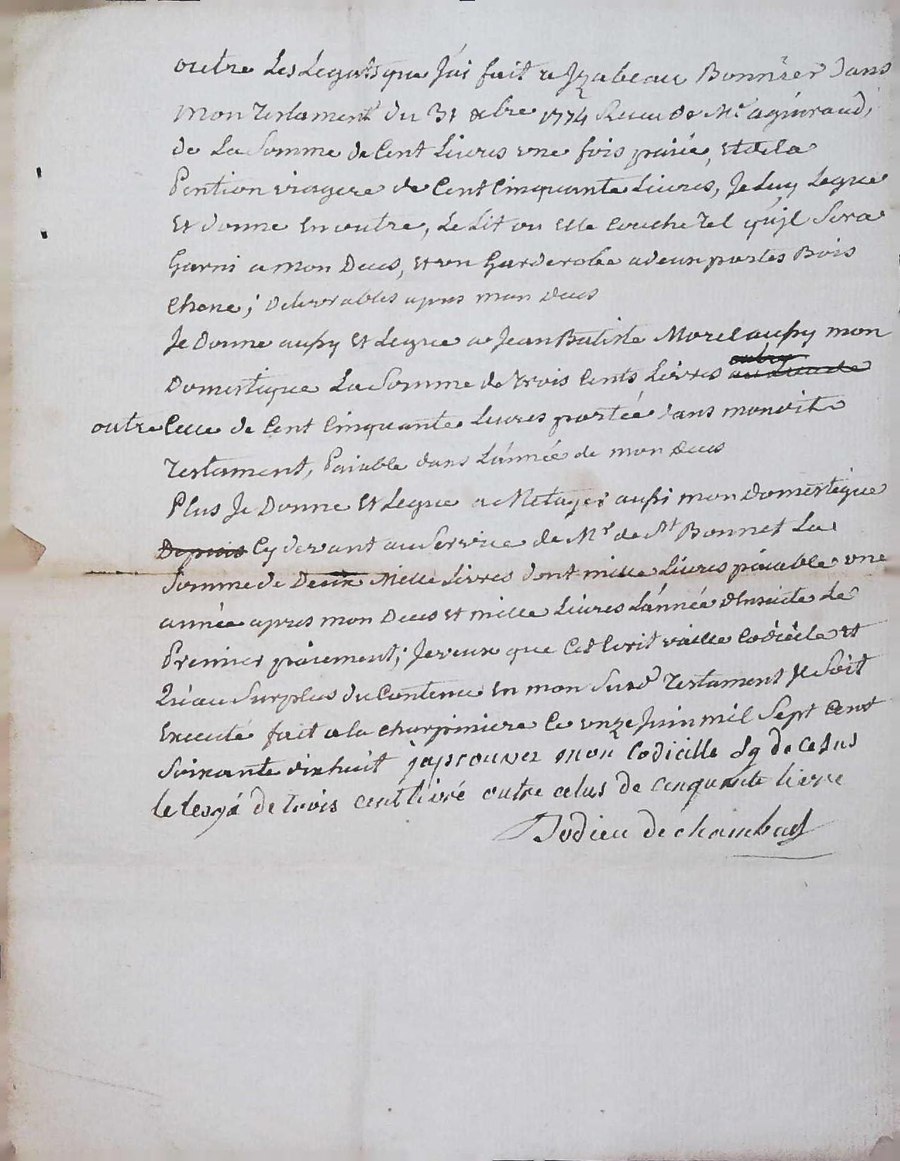 outre Les Legats que J'ai fait a Izabeau Bonnier dans
mon Testament du 31 xbre 1774 Receu de Me
de La Somme de Cent Livres une fois paiée, et de la
Pention viagere de Cent Cinquante Livres, Je Luy Legue
Et donne En outre, Le Lit ou Elle Couche tel qu'il Sera
Garni a mon Deces, et un Garderobe a deux portes Bois
Chene; Delivrables apres mon deces
Je Donne aussy Et Legue a Jean Batiste Morel aussy mon
Domestique La Somme de trois Cents Livres
outre Celle de Cent Cinquante Livres portée dans mondit
Testament, Paiable dans L'année de mon Deces
Plus Je Donne Et Legue a Metayer aussi mon domestique
Depuis Cy devant au Service de Mr de St Bonnet La
Somme de Deux Mille Livres dont mille Livres paiable une
année apres mon Deces et mille Livres L'année d'Ensuite Le
Premier paiement; Je veux que Cet Ecrit vaille Codicile et
Qu'au Surplus du Contenu En mon Susd Testament Il Soit
Executé fait a la charpiniere Ce unze Juin mil Sept Cent
Soixante dixhuit japrouver mon Codicille de cesus
le legá de trois cent livré outre celus de cenquante livre